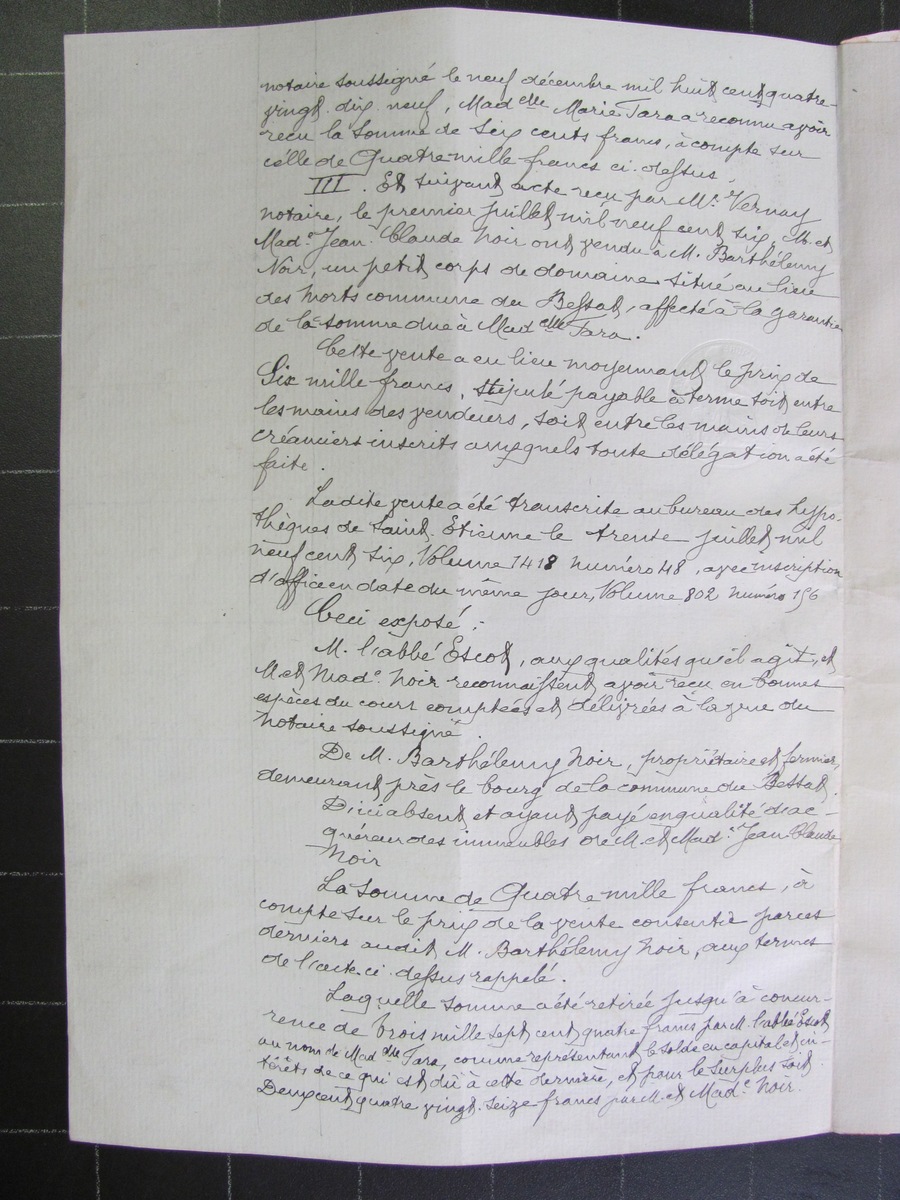 notaire soussigné le neuf décembre mil huit cent quatre-
vingt. dix. neuf, Mad elle Marie Tara a reconnu avoir
reçu la somme de Six cents francs, à compte sur
celle de Quatre mille francs ci. dessus.
III. Et suivant acte reçu par Me Vernay
notaire, le premier juillet mil neuf cent six, M. et
Made Jean Claude Noir ont vendu à M. Barthélemy
Noir, un petit corps de domaine situé au lieu
des Morts commune du Bessat, affecté à la garantie
de la somme due à Mad elle Tara.
Cette vente a eu lieu moyennant le prix de
Six mille francs, stipulé payable à terme soit entre
les mains des vendeurs, soit entre les mains de leurs
créanciers inscrits auxquels toute délégation a été
faite.
Ladite vente a été transcrite au bureau des hypo-
thèques de Saint. Etienne le trente juillet mil
neuf cent six, Volume 1418 numéro 48, avec inscription
d'office en date du même jour, Volume 802 numéro 156
Ceci exposé:
M. l'abbé Escot, aux qualités qu'il agit, et
M. et Made Noir reconnaissent avoir reçu en bonnes
espèces du cours comptées et délivrées à la vue du
notaire soussigné.
De M. Barthélemy Noir, propriétaire et fermier,
demeurant près le bourg de la commune du Bessat.
D'ici absent et ayant payé en qualité d'ac-
quéreur des immeubles de M. et Made Jean Claude
Noir
La somme de Quatre mille francs, à
compte sur le prix de la vente consentie par ces
derniers audit M. Barthélemy Noir, aux termes
de l'acte ci. dessus rappelé.
Laquelle somme a été retirée jusqu'à concur-
rence de trois mille sept cent quatre francs par M. l'abbé Escot
au nom de Mad elle Tara, comme représentant le solde en capital et in-
térêts de ce qui est dû à cette dernière, et pour le surplus soit
Deux cent quatre vingt. seize francs par M. et Made Noir.